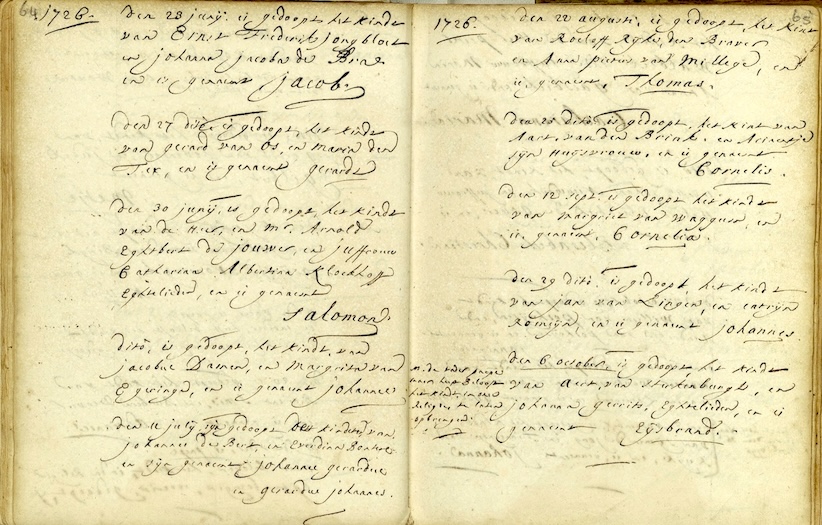 64
1726.
den 23 junij. is gedoopt, het kindt
van Ernst Frederik Jongbloet
en Johanna Jacoba de
en is genaemt Jacob.
den 27 dito is gedoopt, het kindt
van gerard van Os, en Maria den
Tex, en is genaemt gerardt
den 30 junij, is gedoopt, het kindt
van de Heer, en Mr. Arnold
Eghbert de Jouwer, en Juffrouw
Catharina Albertina Klockhoff
Eghtelieden, en is genaemt
Salomon.
dito, is gedoopt, het kindt, van
Jacobus Damen, en Margrita van
en is genaemt Johannes
den 11 julij, zijn gedoopt de kinders, van
Johannes de Bert, en Everdina
en zijn genaemt Johannes gerardus
en gerardus Johannes.
65
1726.
den 22 augusti, is gedoopt, het kint
van Roeloff Ryke, den
en Anna pieters van Millege, en
is genaemt, Thomas.
den 25 dito, is gedoopt, het kint van
Aart, van den Brink, en
zijn Huijsvrouw, en is genaemt
Cornelis.
den 12 sept. is gedoopt het kindt
van Margriet van Waggum, en
is genaemt, Cornelia.
den 29 dito, is gedoopt, het kindt
van Jan van Lingen, en Catrijn
Romijn, en is genaemt Johannes.
den 6 october, is gedoopt het kindt
van Aert, van Sterkenburgh, en
Johanna gerrits, Eghtelieden, en is
genaemt Eijsbrand.
de vader
heeft belooft
het kint, in onse
Religie, te laten
opbrengen.